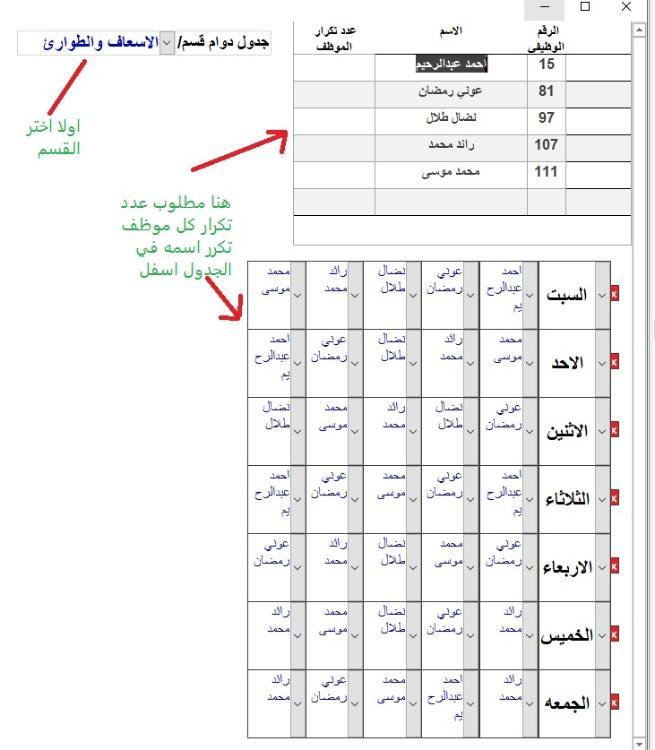 جدول دوام قسم/ الاسعاف والطوارئ
اولا اختر
القسم
الرقم
الوظيفي
الاسم
عدد تكرار
الموظف
15 احمد عبدالرحيم
81 عوني رمضان
97 نضال طلال
107 رائد محمد
111 محمد موسى
هنا مطلوب عدد
تكرار كل موظف
تكرر اسمه في
الجدول اسفل
السبت احمد عبدالرحيم عوني رمضان نضال طلال رائد محمد محمد موسى
الاحد محمد موسى رائد محمد نضال طلال عوني رمضان احمد عبدالرحيم
الاثنين عوني رمضان نضال طلال رائد محمد محمد موسى نضال طلال
الثلاثاء احمد عبدالرحيم عوني رمضان محمد موسى عوني رمضان احمد عبدالرحيم
الاربعاء عوني رمضان محمد موسى نضال طلال رائد محمد عوني رمضان
الخميس رائد محمد عوني رمضان نضال طلال محمد موسى رائد محمد
الجمعه رائد محمد احمد عبدالرحيم محمد موسى عوني رمضان رائد محمد